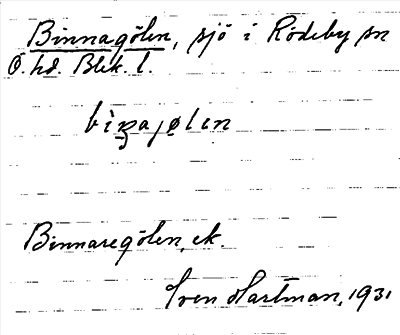 Binnagölen, sjö i Rödeby sn
Ö. hd. Blek. l.
Binnaregölen, ek.
Sven Hartman, 1931